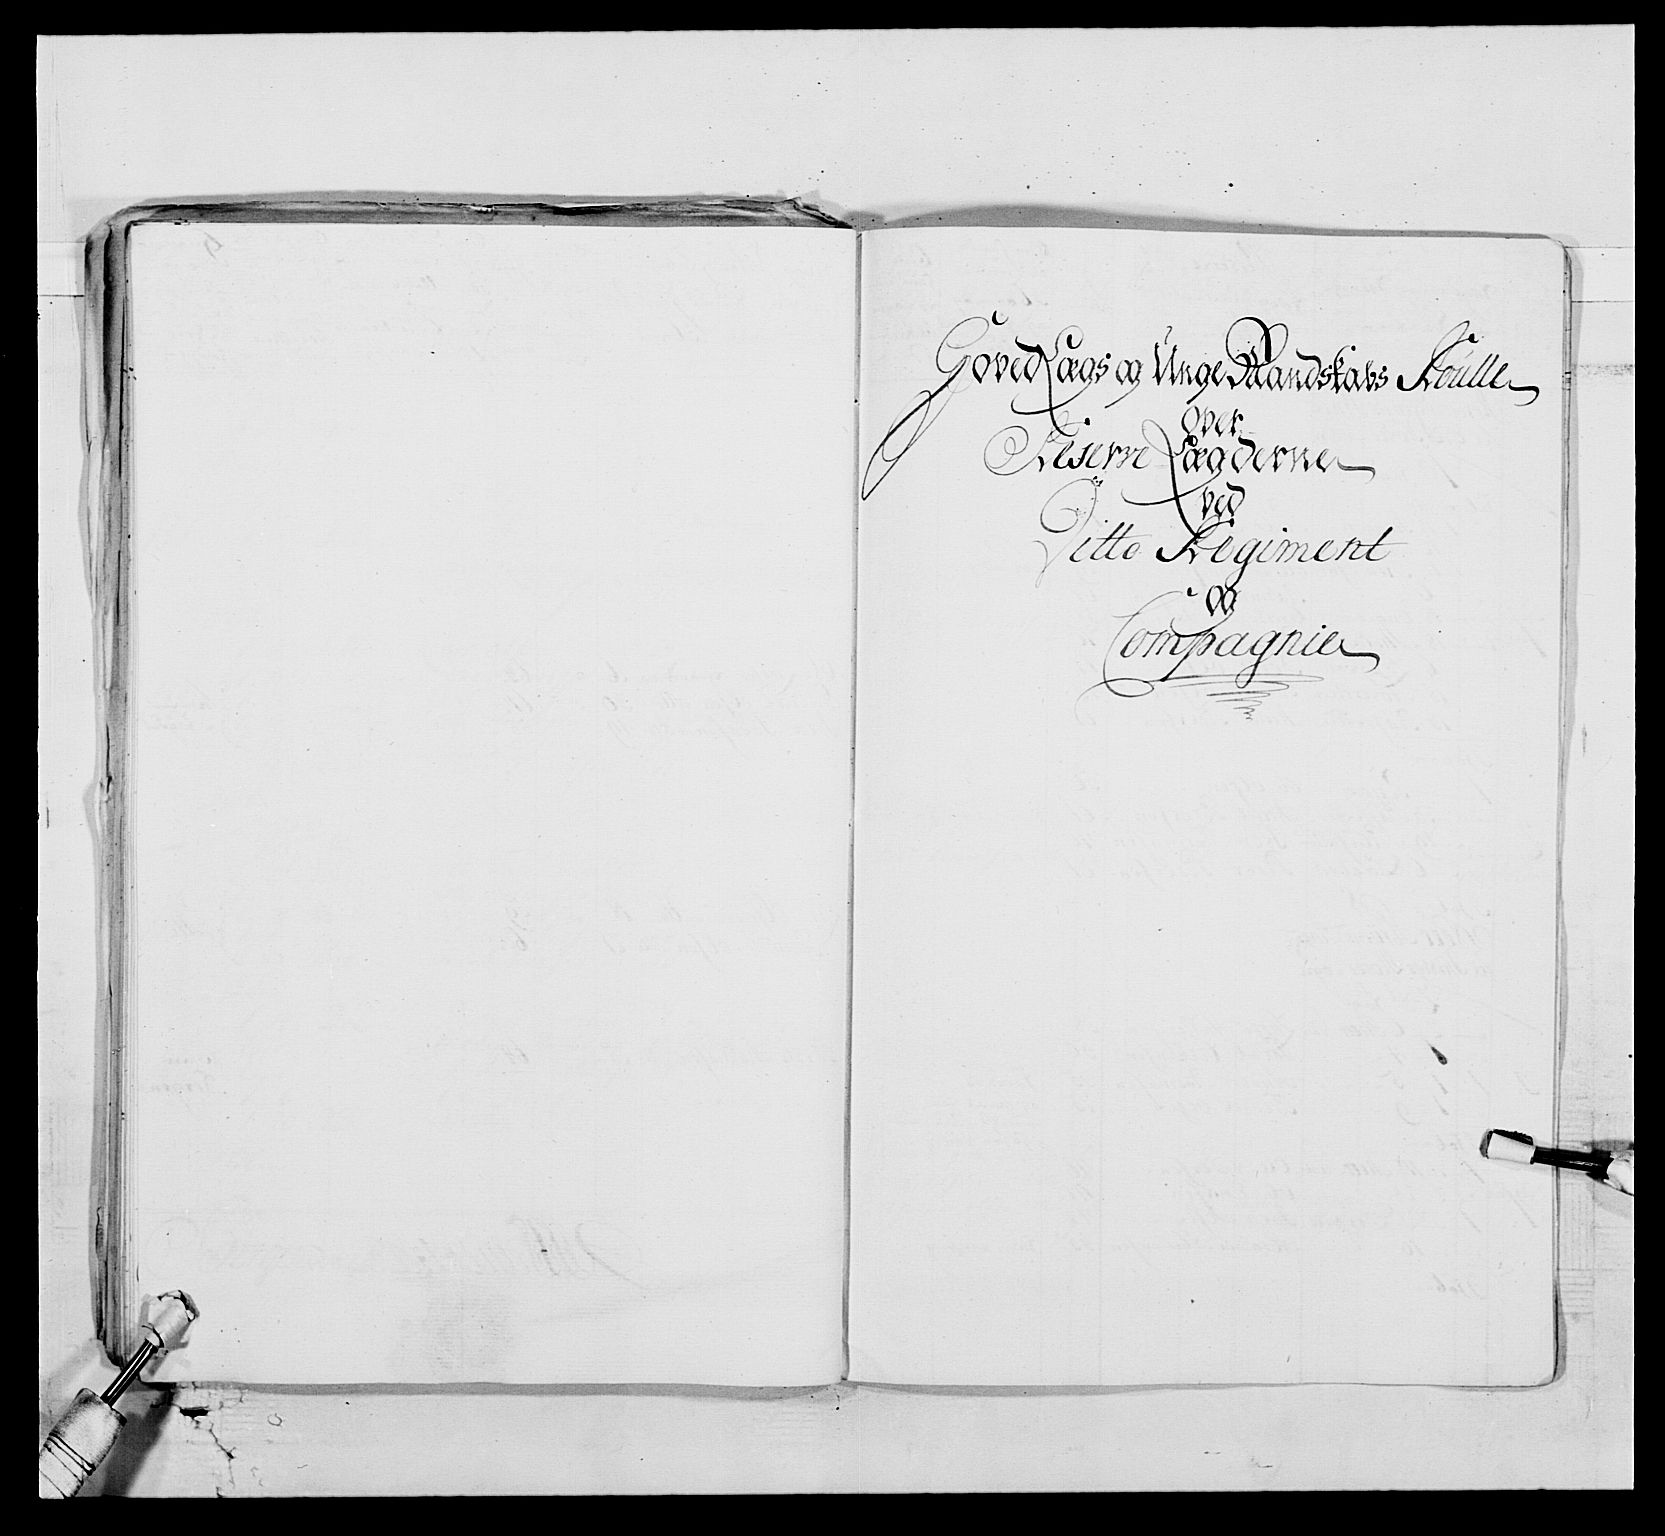 Hoved Lægs og Unge Mandskabs Roulle
over
Reserve Lægderne
ved
Ditto Regiment
og
Compagnie